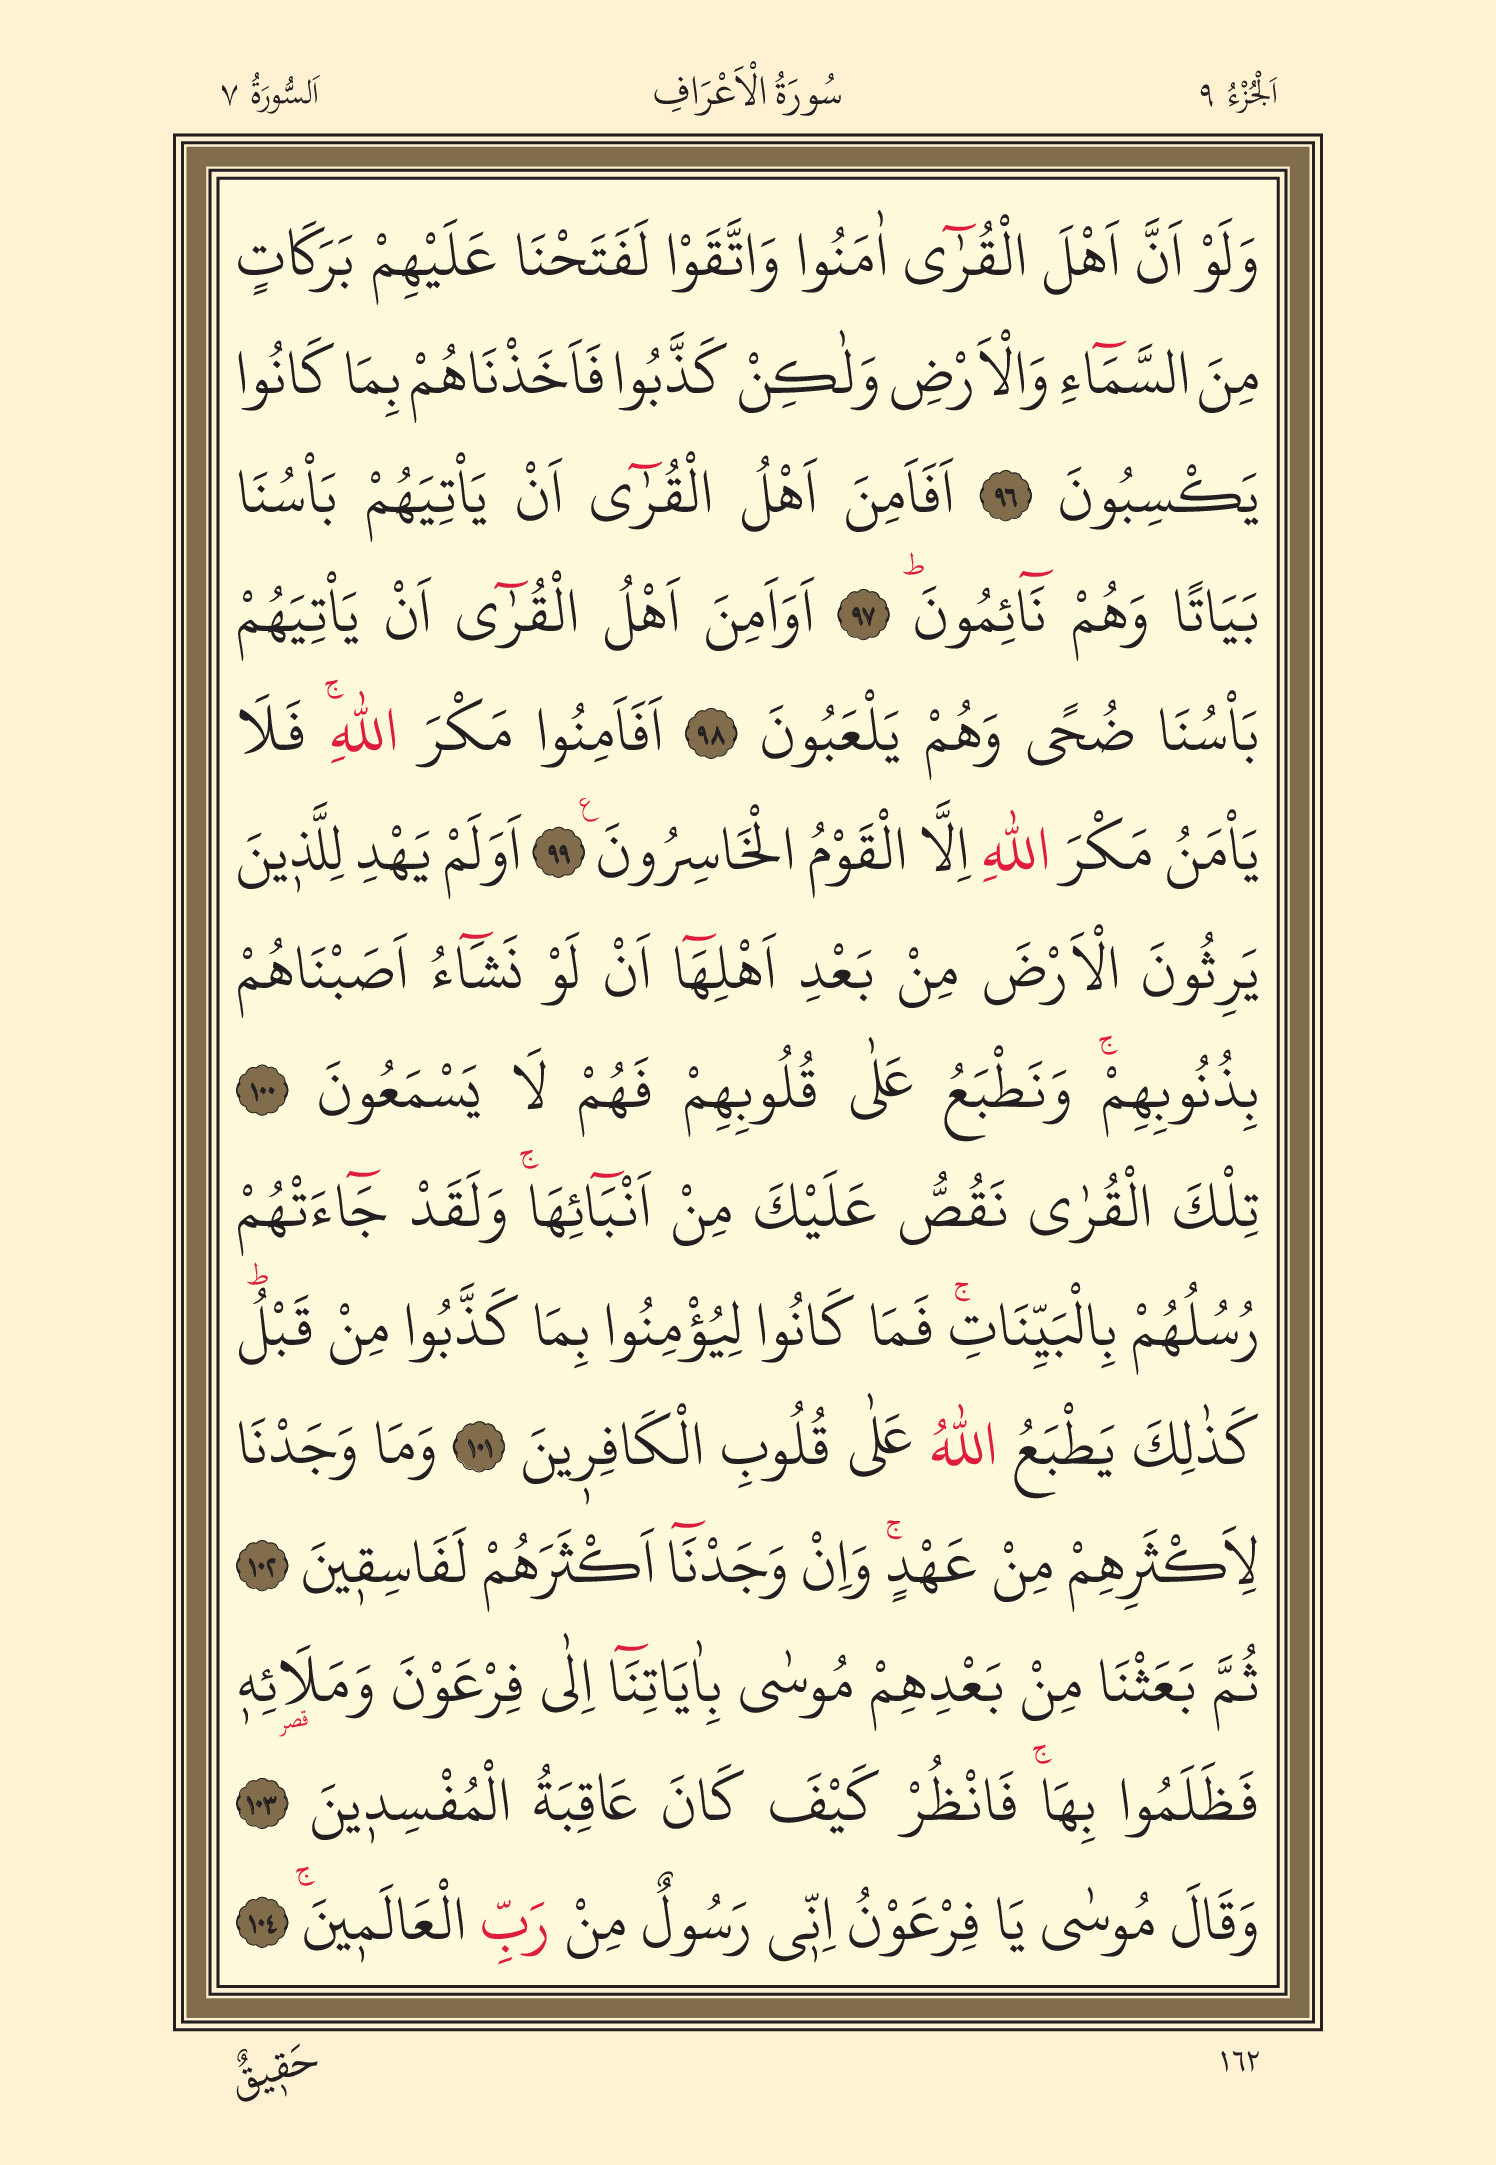 اَلْجُزْءُ ٩ سُورَةُ الْاَعْرَافِ اَلسُّورَةُ ٧
وَلَوْ اَنَّ اَهْلَ الْقُرٰٓى اٰمَنُوا وَاتَّقَوْا لَفَتَحْنَا عَلَيْهِمْ بَرَكَاتٍ
مِنَ السَّمَٓاءِ وَالْاَرْضِ وَلٰكِنْ كَذَّبُوا فَاَخَذْنَاهُمْ بِمَا كَانُوا
يَكْسِبُونَ ٩٦ اَفَاَمِنَ اَهْلُ الْقُرٰٓى اَنْ يَاْتِيَهُمْ بَاْسُنَا
بَيَاتًا وَهُمْ نَٓائِمُونَ ط ٩٧ اَوَاَمِنَ اَهْلُ الْقُرٰٓى اَنْ يَاْتِيَهُمْ
بَاْسُنَا ضُحًى وَهُمْ يَلْعَبُونَ ٩٨ اَفَاَمِنُوا مَكْرَ اللّٰهِ ج فَلَا
يَاْمَنُ مَكْرَ اللّٰهِ اِلَّا الْقَوْمُ الْخَاسِرُونَ ع ٩٩ اَوَلَمْ يَهْدِ لِلَّذٖينَ
يَرِثُونَ الْاَرْضَ مِنْ بَعْدِ اَهْلِهَٓا اَنْ لَوْ نَشَٓاءُ اَصَبْنَاهُمْ
بِذُنُوبِهِمْ ج وَنَطْبَعُ عَلٰى قُلُوبِهِمْ فَهُمْ لَا يَسْمَعُونَ ١٠٠
تِلْكَ الْقُرٰى نَقُصُّ عَلَيْكَ مِنْ اَنْبَٓائِهَا ج وَلَقَدْ جَٓاءَتْهُمْ
رُسُلُهُمْ بِالْبَيِّنَاتِ ج فَمَا كَانُوا لِيُؤْمِنُوا بِمَا كَذَّبُوا مِنْ قَبْلُ ط
كَذٰلِكَ يَطْبَعُ اللّٰهُ عَلٰى قُلُوبِ الْكَافِرٖينَ ١٠١ وَمَا وَجَدْنَا
لِاَكْثَرِهِمْ مِنْ عَهْدٍ ج وَاِنْ وَجَدْنَٓا اَكْثَرَهُمْ لَفَاسِقٖينَ ١٠٢
ثُمَّ بَعَثْنَا مِنْ بَعْدِهِمْ مُوسٰى بِاٰيَاتِنَٓا اِلٰى فِرْعَوْنَ وَمَلَائِهٖ قصر
فَظَلَمُوا بِهَا ج فَانْظُرْ كَيْفَ كَانَ عَاقِبَةُ الْمُفْسِدٖينَ ١٠٣
وَقَالَ مُوسٰى يَا فِرْعَوْنُ اِنّٖى رَسُولٌ مِنْ رَبِّ الْعَالَمٖينَ ج ١٠٤
١٦٢ حَقٖيقٌ